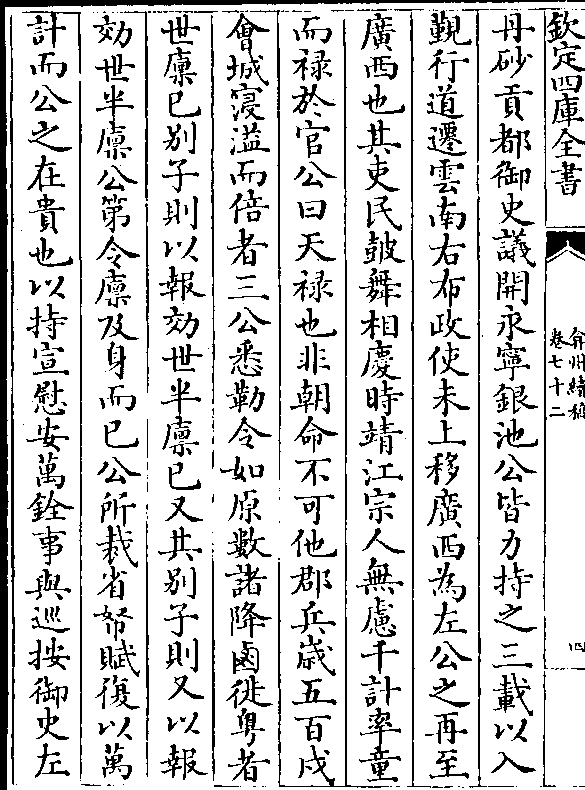 欽定四庫全書
弇州續稿
卷七十二
四
丹砂貢都御史議開永寧銀池公皆力持之三載以入
觐行道遷雲南右布政使未上移廣西為左公之再至
廣西也其吏民皷舞相慶時靖江宗人無慮千計率童
而禄於官公曰天禄也非朝命不可他郡兵歳五百戍
會城寖溢而倍者三公悉勒令如原數諸降鹵徙粤者
世廪已别子則以報効世半廪已又其别子則又以報
効世半廪公第令廪及身而已公所裁省帑賦復以萬
計而公之在貴也以持宣慰安萬銓事與巡按御史左